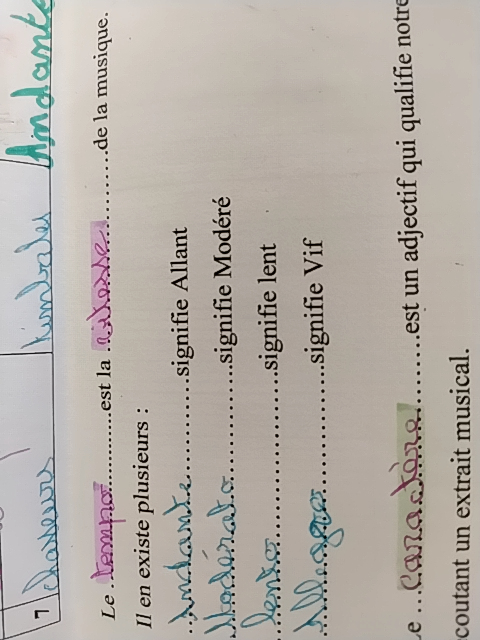 7 chasseurs timbales Andante
Le ..tempo............est la ..vitesse..............de la musique.
Il en existe plusieurs :
..Andante..............signifie Allant
..Modérato..............signifie Modéré
..lento..............signifie lent
..Allegro..............signifie Vif
e ...Caractère.........est un adjectif qui qualifie notre
coutant un extrait musical.